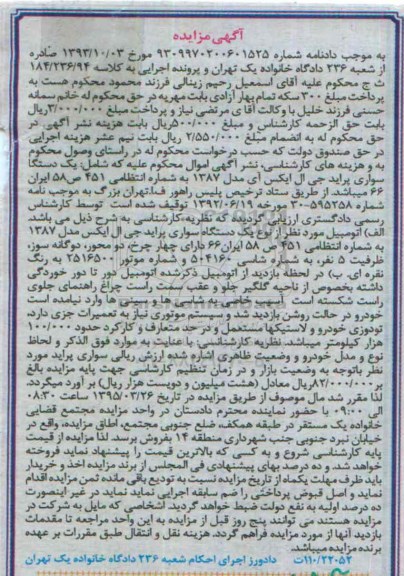 آگهی مزایده
به موجب دادنامه شماره ۹۳۰۹۹۷۰۲۰۰۶۰۱۵۲۵ مورخ ۱۳۹۳/۱۰/۰۳ صادره
از شعبه ۲۳۶ دادگاه خانواده یک تهران و پرونده اجرایی به کلاسه ۱۸۴/۲۳۶/۹۴
ث ج محکوم علیه آقای اسمعیل رحیم زینالی فرزند محمود محکوم هست به
پرداخت مبلغ ۳۰۰ سکه تمام بهار آزادی بابت مهریه در حق محکوم له خانم سمانه
حسنی فرزند خلیل با وکالت آقای مرتضی نیاز و پرداخت مبلغ ۳/۰۰۰/۰۰۰ریال
بابت حق الزحمه کارشناس و مبلغ ۵۰۰/۰۰۰ریال بابت هزینه نشر آگهی در
حق محکوم له به انضمام مبلغ ۲/۵۵۰/۰۰۰ ریال بابت نیم عشر هزینه اجرایی
در حق صندوق دولت که حسب درخواست محکوم له در راستای وصول محکوم
به و هزینه های کارشناسی، نشر آگهی اموال محکوم علیه که شامل: یک دستگاه
سواری پراید جی ال ایکس آی مدل ۱۳۸۷ به شماره انتظامی ۴۵۱ ص۵۸ ایران
۶۶ میباشد. از طریق ستاد ترخیص پلیس راهور فا.تهران بزرگ به موجب نامه
شماره ۳۰۰۵۹۵۲۵۸ مورخه ۱۳۹۲/۰۶/۱۹ توقیف شده است توسط کارشناس
رسمی دادگستری ارزیابی گردیده که نظریه کارشناسی به شرح ذیل می باشد.
الف) اتومبیل مورد نظر از نوع یک دستگاه سواری پراید جی ال ایکس مدل ۱۳۸۷
به شماره انتظامی ۴۵۱ ص ۵۸ ایران۶۶ دارای چهار چرخ، دو محور، دوگانه سوز،
ظرفیت ۵ نفر، به شماره شاسی و شماره موتور ۲۵۱۶۵۰۰ به رنگ
نقره ای. ب) در لحظه بازدید از اتومبیل ذکرشده اتومبیل دور تا دور خوردگی
داشته بخصوص از ناحیه گلگیر جلو و عقب سمت راست چراغ راهنمای جلوی
راست شکسته است آسیب خاصی به شاسی ها و سینی ها وارد نیامده است
خودرو در حالت روشن بازدید شد و سیستم موتوری نیاز به تعمیرات جزی دارد،
تودوزی خودرو و لاستیکها مستعمل و در حد متعارف و کارکرد حدود ۱۰۰/۰۰۰
هزار کیلومتر میباشد. نظریه کارشناسی: با عنایت به موارد فوق الذکر و لحاظ
نوع و مدل خودرو و وضعیت ظاهری اشاره شده ارزش ریالی سواری پراید مورد
نظر باتوجه به وضعیت بازار و در زمان تنظیم کارشناسی جهت پایه مزایده بالغ
بر ۸۲/۰۰۰/۰۰۰ریال معادل (هشت میلیون و دویست هزار ریال) بر آورد میگردد.
لذا مقرر شد مال موصوف از طریق مزایده در تاریخ ۱۳۹۵/۰۳/۲۶ ساعت ۰۸:۳۰
الی ۰۹:۰۰ با حضور نماینده محترم دادستان در واحد مزایده مجتمع قضایی
خانواده یک مستقر در طبقه همکف، ضلع جنوبی مجتمع، اطاق مزایده، واقع در
خیابان نبرد جنوبی جنب شهرداری منطقه ۱۴ بفروش برسد. لذا مزایده از قیمت
پایه کارشناسی شروع و به کسی که بالاترین قیمت را پیشنهاد نماید فروخته
خواهد شد. و ده درصد بهای پیشنهادی فی المجلس از برنده مزایده اخذ و خریدار
باید ظرف مهلت یکماه از تاریخ مزایده نسبت به تودیع باقی مانده ثمن مزایده اقدام
نماید و اصل قبوض پرداختی را ضم سابقه اجرایی نماید نماید در غیر اینصورت
ده درصد اولیه به نفع دولت ضبط خواهد گردید. اشخاصی که مایل به شرکت در
مزایده هستند می توانند پنج روز قبل از مزایده به این واحد مراجعه تا مقدمات
بازدید آنها از مورد مزایده فراهم گردد. هزینه نقل و انتقال طبق مقررات بر عهده
برنده مزایده میباشد.
۱۱۰/۲۲۰۵۲ت دادورز اجرای احکام شعبه ۲۳۶ دادگاه خانواده یک تهران